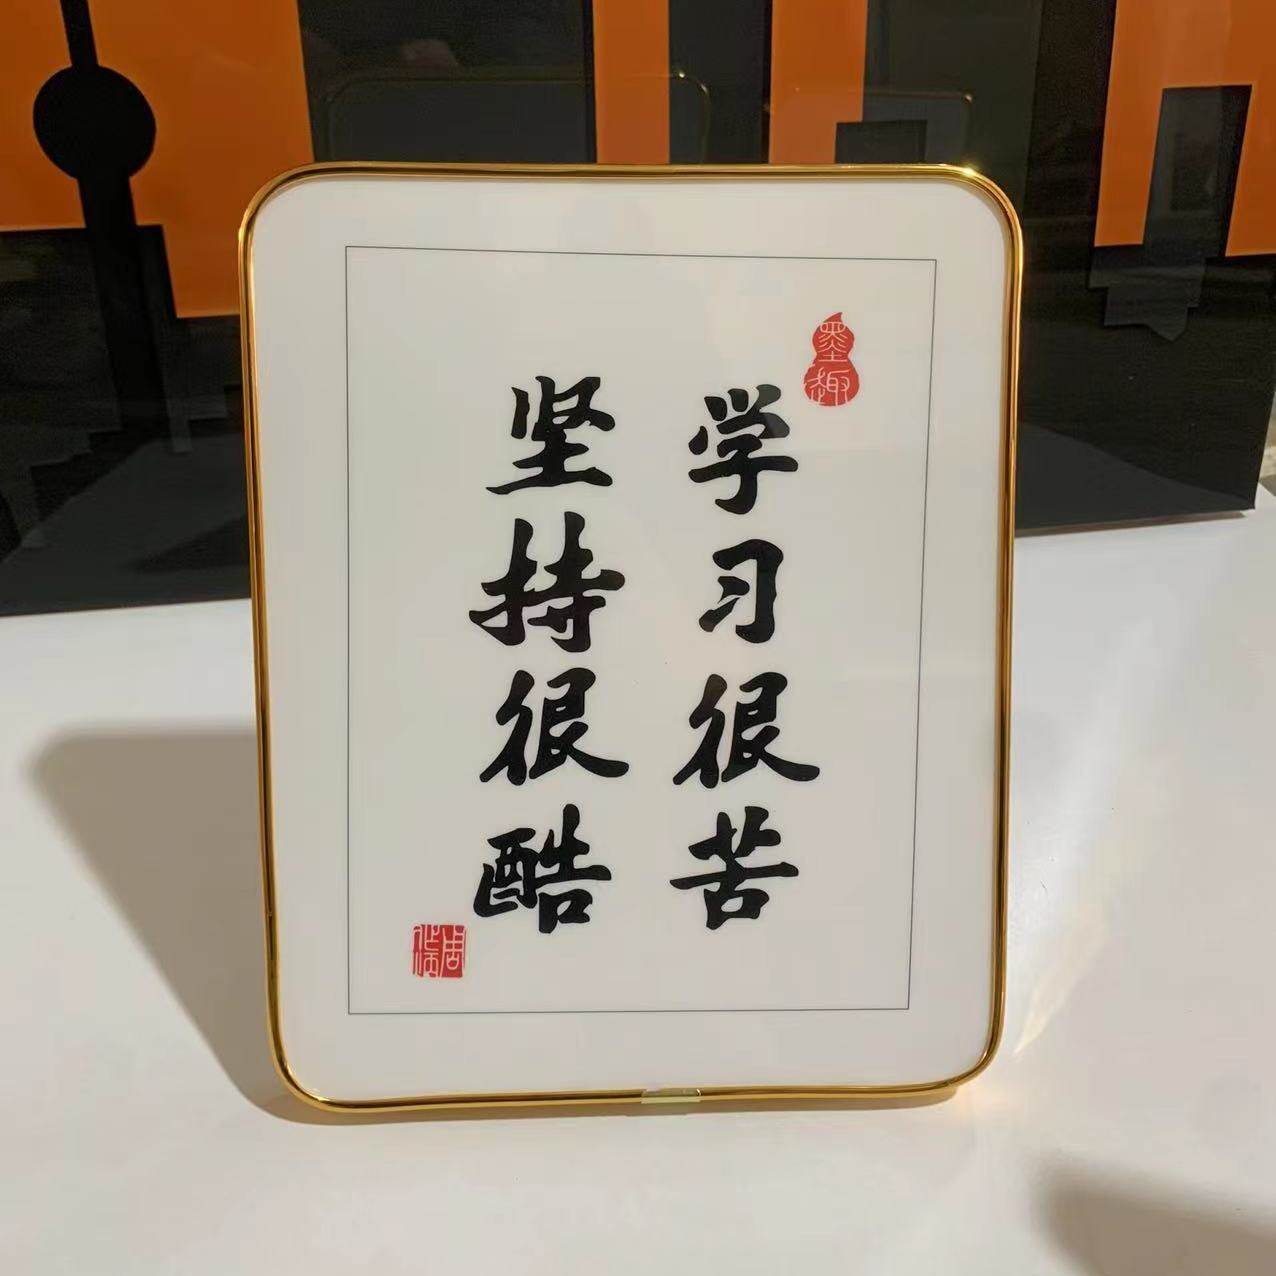 墨趣
学习很苦
坚持很酷